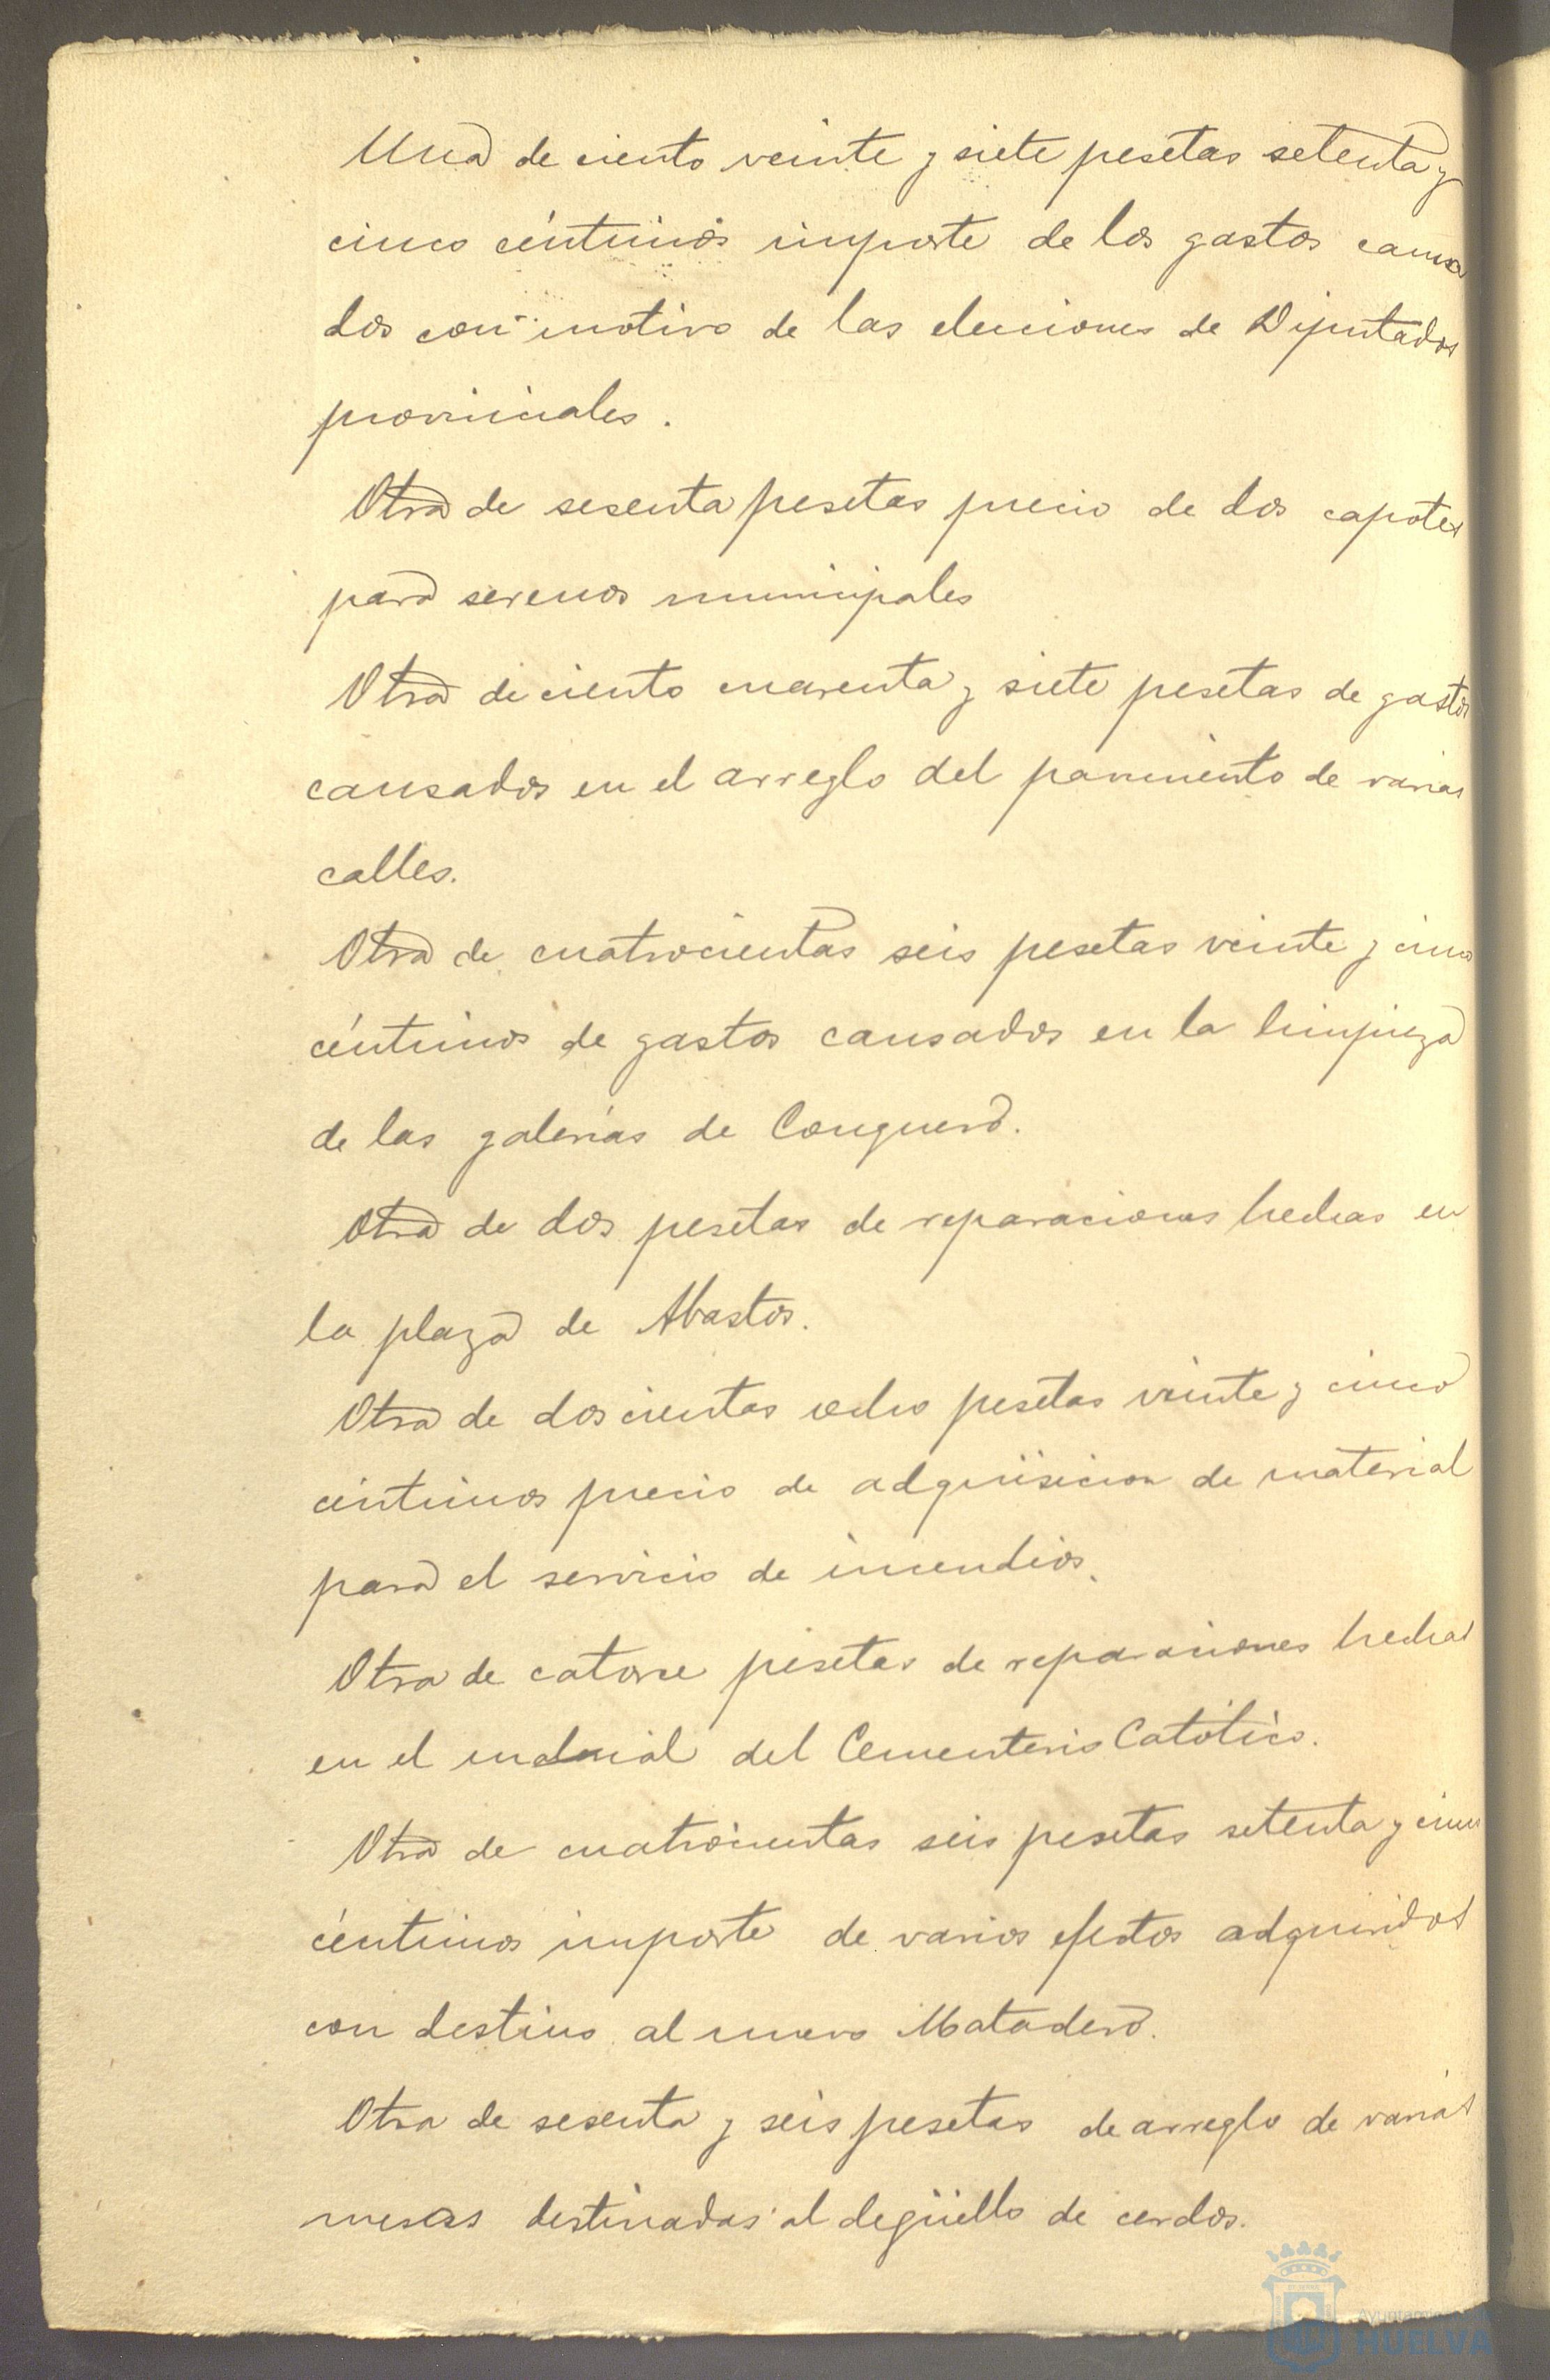 Una de ciento veinte y siete pesetas setenta y
cinco céntimos importe de los gastos causa
dos con motivo de las elecciones de Diputados
provinciales.
Otra de sesenta pesetas precio de dos capotes
para serenos municipales
Otra de ciento cuarenta y siete pesetas de gastos
causados en el arreglo del pavimento de varias
calles.
Otra de cuatrocientas seis pesetas veinte y cinco
céntimos de gastos causados en la limpieza
de las galerías de Conquero.
Otra de dos pesetas de reparaciones hechas en
la plaza de Abastos.
Otra de doscientas ocho pesetas veinte y cinco
céntimos precio de adquisicion de material
para el servicio de incendios.
Otra de catorce pesetas de reparaciones hechas
en el del Cementerio Católico.
Otra de cuatrocientas seis pesetas setenta y cinco
céntimos importe de varios efectos adquiridos
con destino al nuevo Matadero.
Otra de sesenta y seis pesetas de arreglo de varias
mesas destinadas al degüello de cerdos.
HUELVA